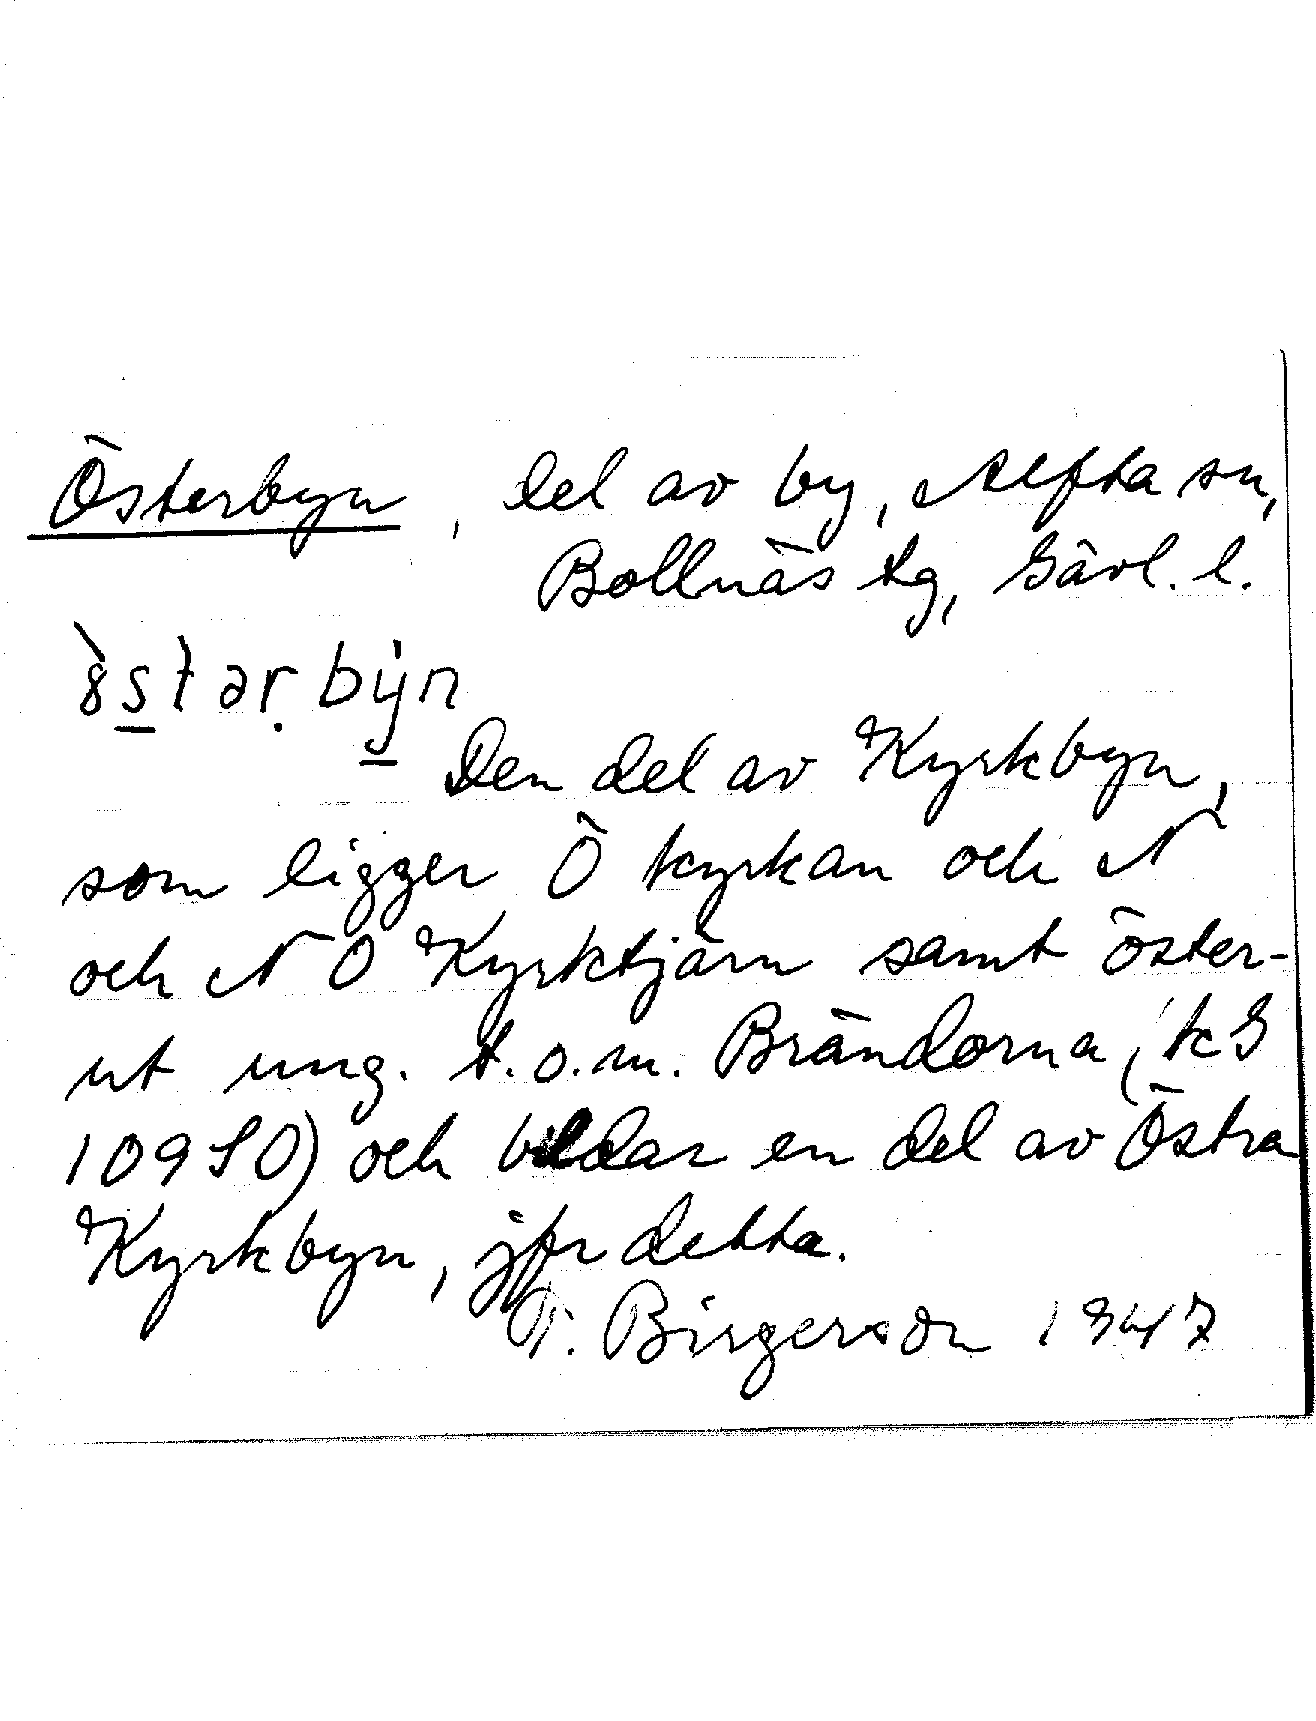 Österbyn, del av by, Alfta sn,
Bollnäs tg, Gävl. l.
Den del av Kyrkbyn,
som ligger Ö kyrkan och N
och NO Kyrktjärn samt öster-
ut ung. t.o.m. Brändorna, (kS
10950) och bildar en del av Östra
Kyrkbyn, jfr detta.
T. Birgerson 1947